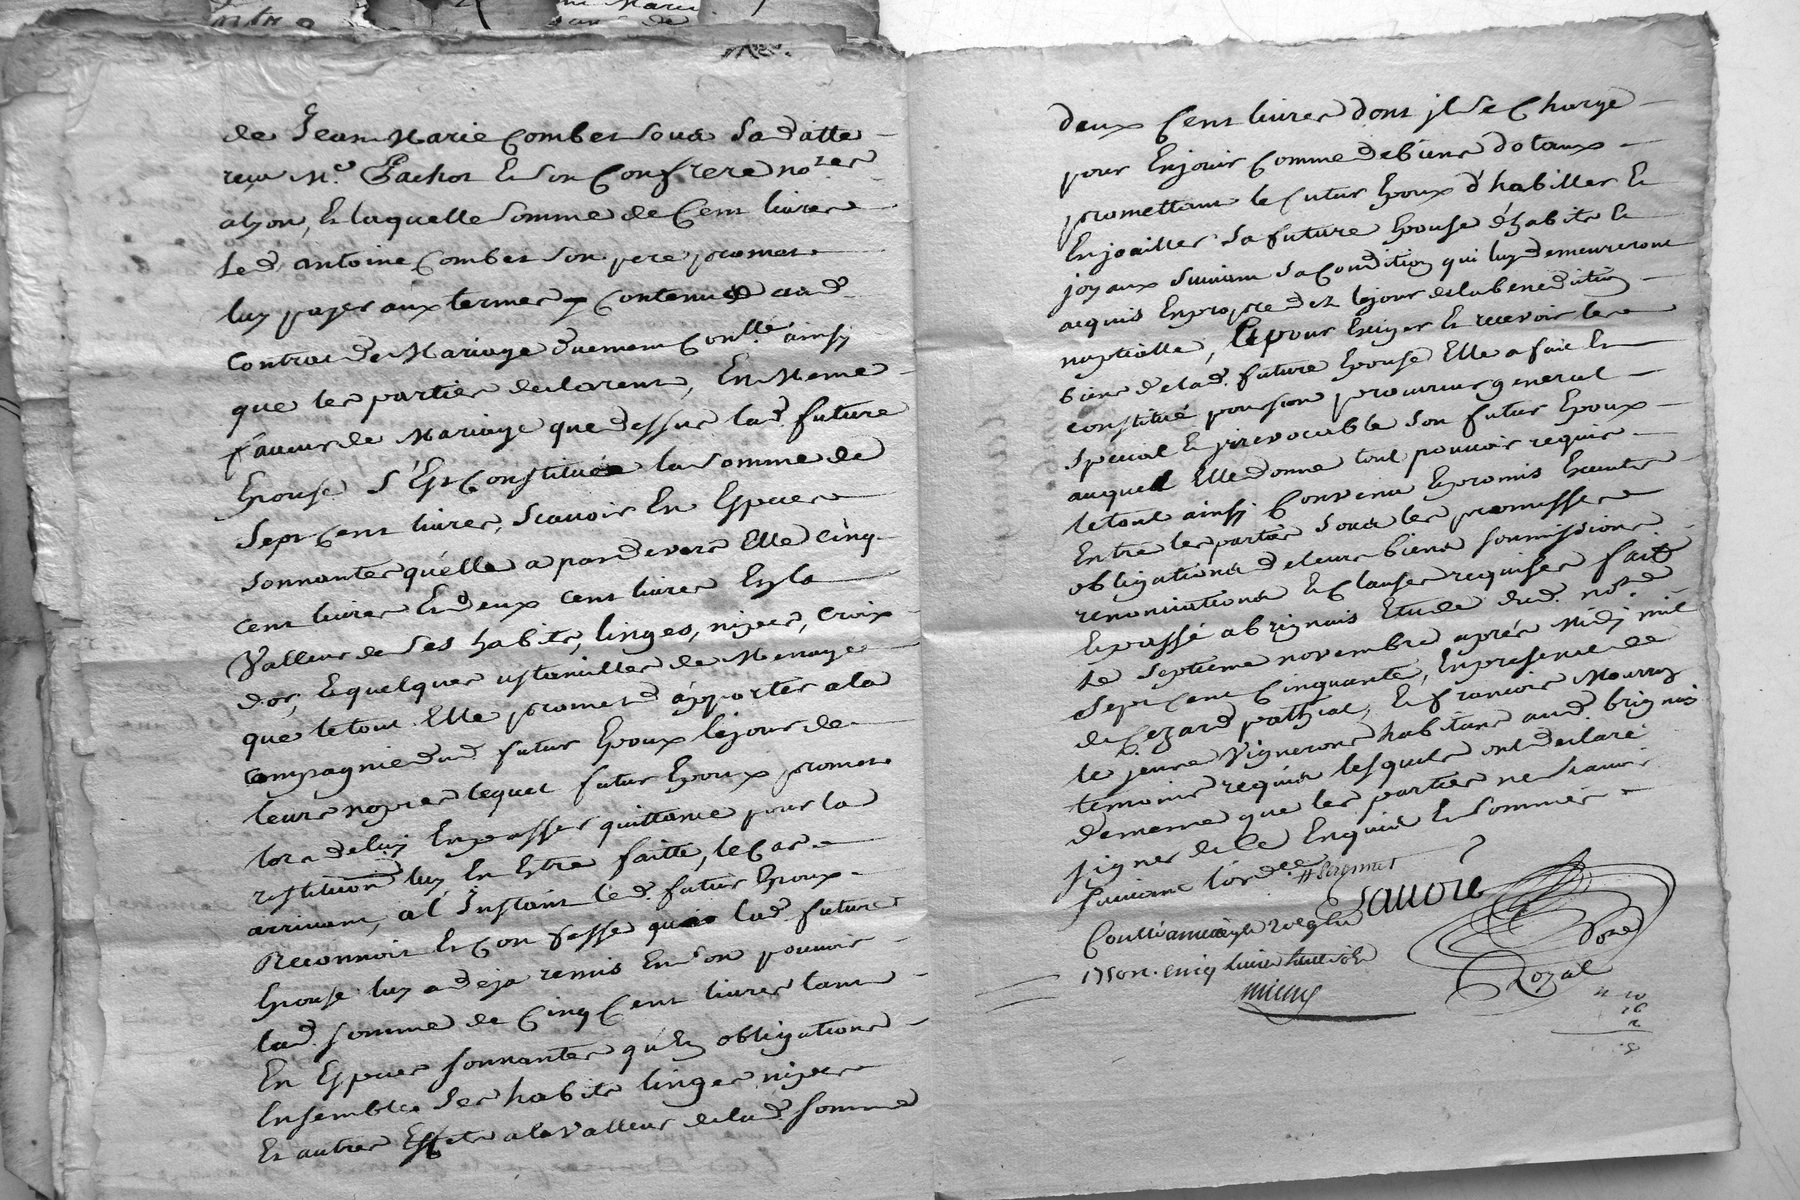 de Jean Marie Combet sous sa datte
reçu Me. Pachot & son Confrere no.res
a lyon, Et laquelle somme de Cent livres
Led. antoine Combet son pere promet
luy payer aux termes y contenus aud.
Contrat de Mariage duement Con.llé ainsy
que les parties declarent, En Meme
faveur de Mariage que dessus lad. future
Epouse s'Est Constituée la somme de
Sept Cent livres, Scavoir En Especes
sonnantes qu'elle a pardevers Elle Cinq
cent livres Et deux cent livres En la
Valleur de Ses habits, linges, nipes, Croix
d'or, & quelques ustancilles de Menage
que le tout Elle promet d'apporter a la
Compagnie dud. futur Epoux le jour de
leurs nopces lequel futur Epoux promet
lors de luy En passer quittance pour la
restitution luy En Etre faitte, le Cas
arrivant, a l'Instant led. futur Epoux
Reconnoit & Confesse que lad. future
Epouse luy a deja remis En son pouvoir
lad. somme de Cinq Cent livres tant
En Especes sonnantes qu'En obligations
Ensemble Ses habits linges nipes
Et autres Effets a la Valleur de lad. somme
deux Cent livres dont jl se Charge
pour Enjouir Comme de biens dotaux
promettant le futur Epoux d'habiller &
Enjoailler sa future Epouse d'habits &
joyaux suivant sa Condition qui luy demeureront
acquis En propre dez le jour de la benediction
nuptialle, Et pour Exiger & recevoir les
biens de lad. future Epouse Elle a fait &
constitué pour son procureur general
special & jrrevocable son futur Epoux
auquel Elle donne tout pouvoir requis
le tout ainsy Convenu & promis
Entre les parties sous les promesses
obligations de leurs biens soumissions
renonciations & Clauses requises fait
& passé a brignais Etude dud. no.re
le septieme novembre après Midy mil
Sept Cent Cinquante, En presence de
de Cezard pathiat, & francois Mourry
le jeune Vignerons habitans aud. brignais
temoins requis lesquels ont declaré
de meme que les parties ne scavoir
signer de Ce Enquis & sommés
suivant l'ord.ce
Savore
no.re
Royal
1750